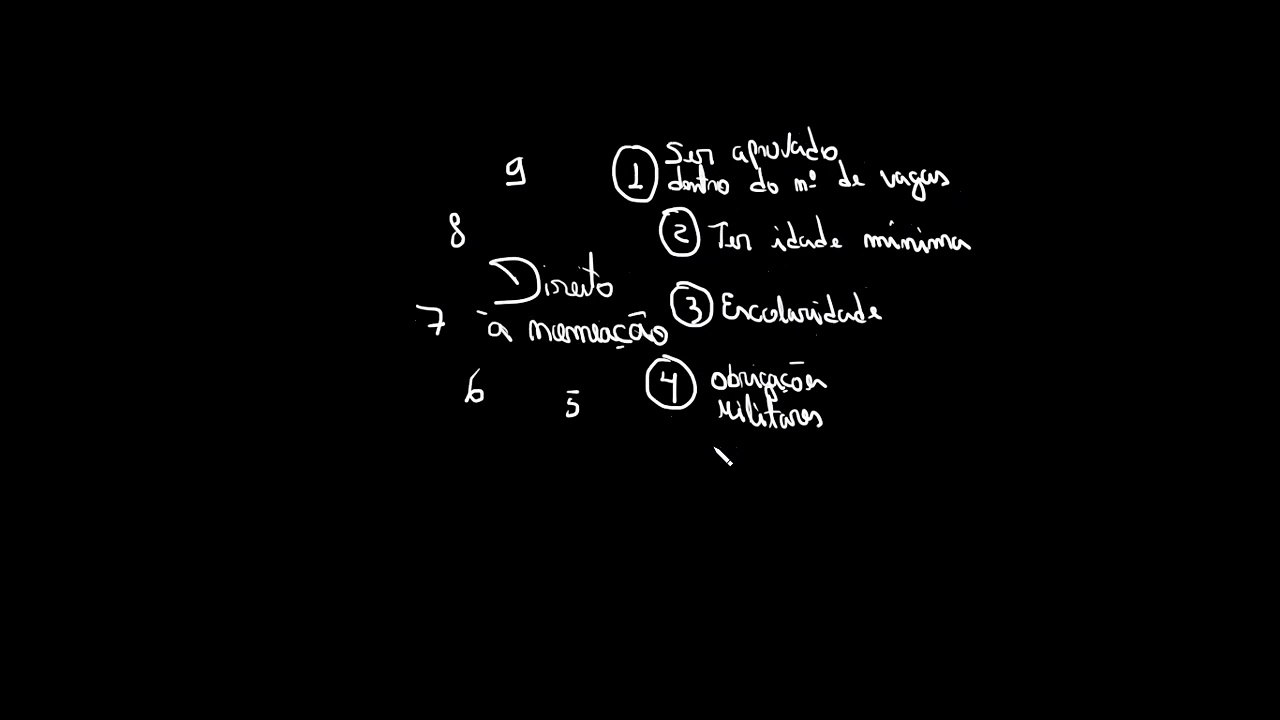 9
① Ser aprovado
dentro do nº de vagas
8
② Ter idade mínima
Direito
à nomeação
③ Escolaridade
7
④ obrigações
militares
6
5